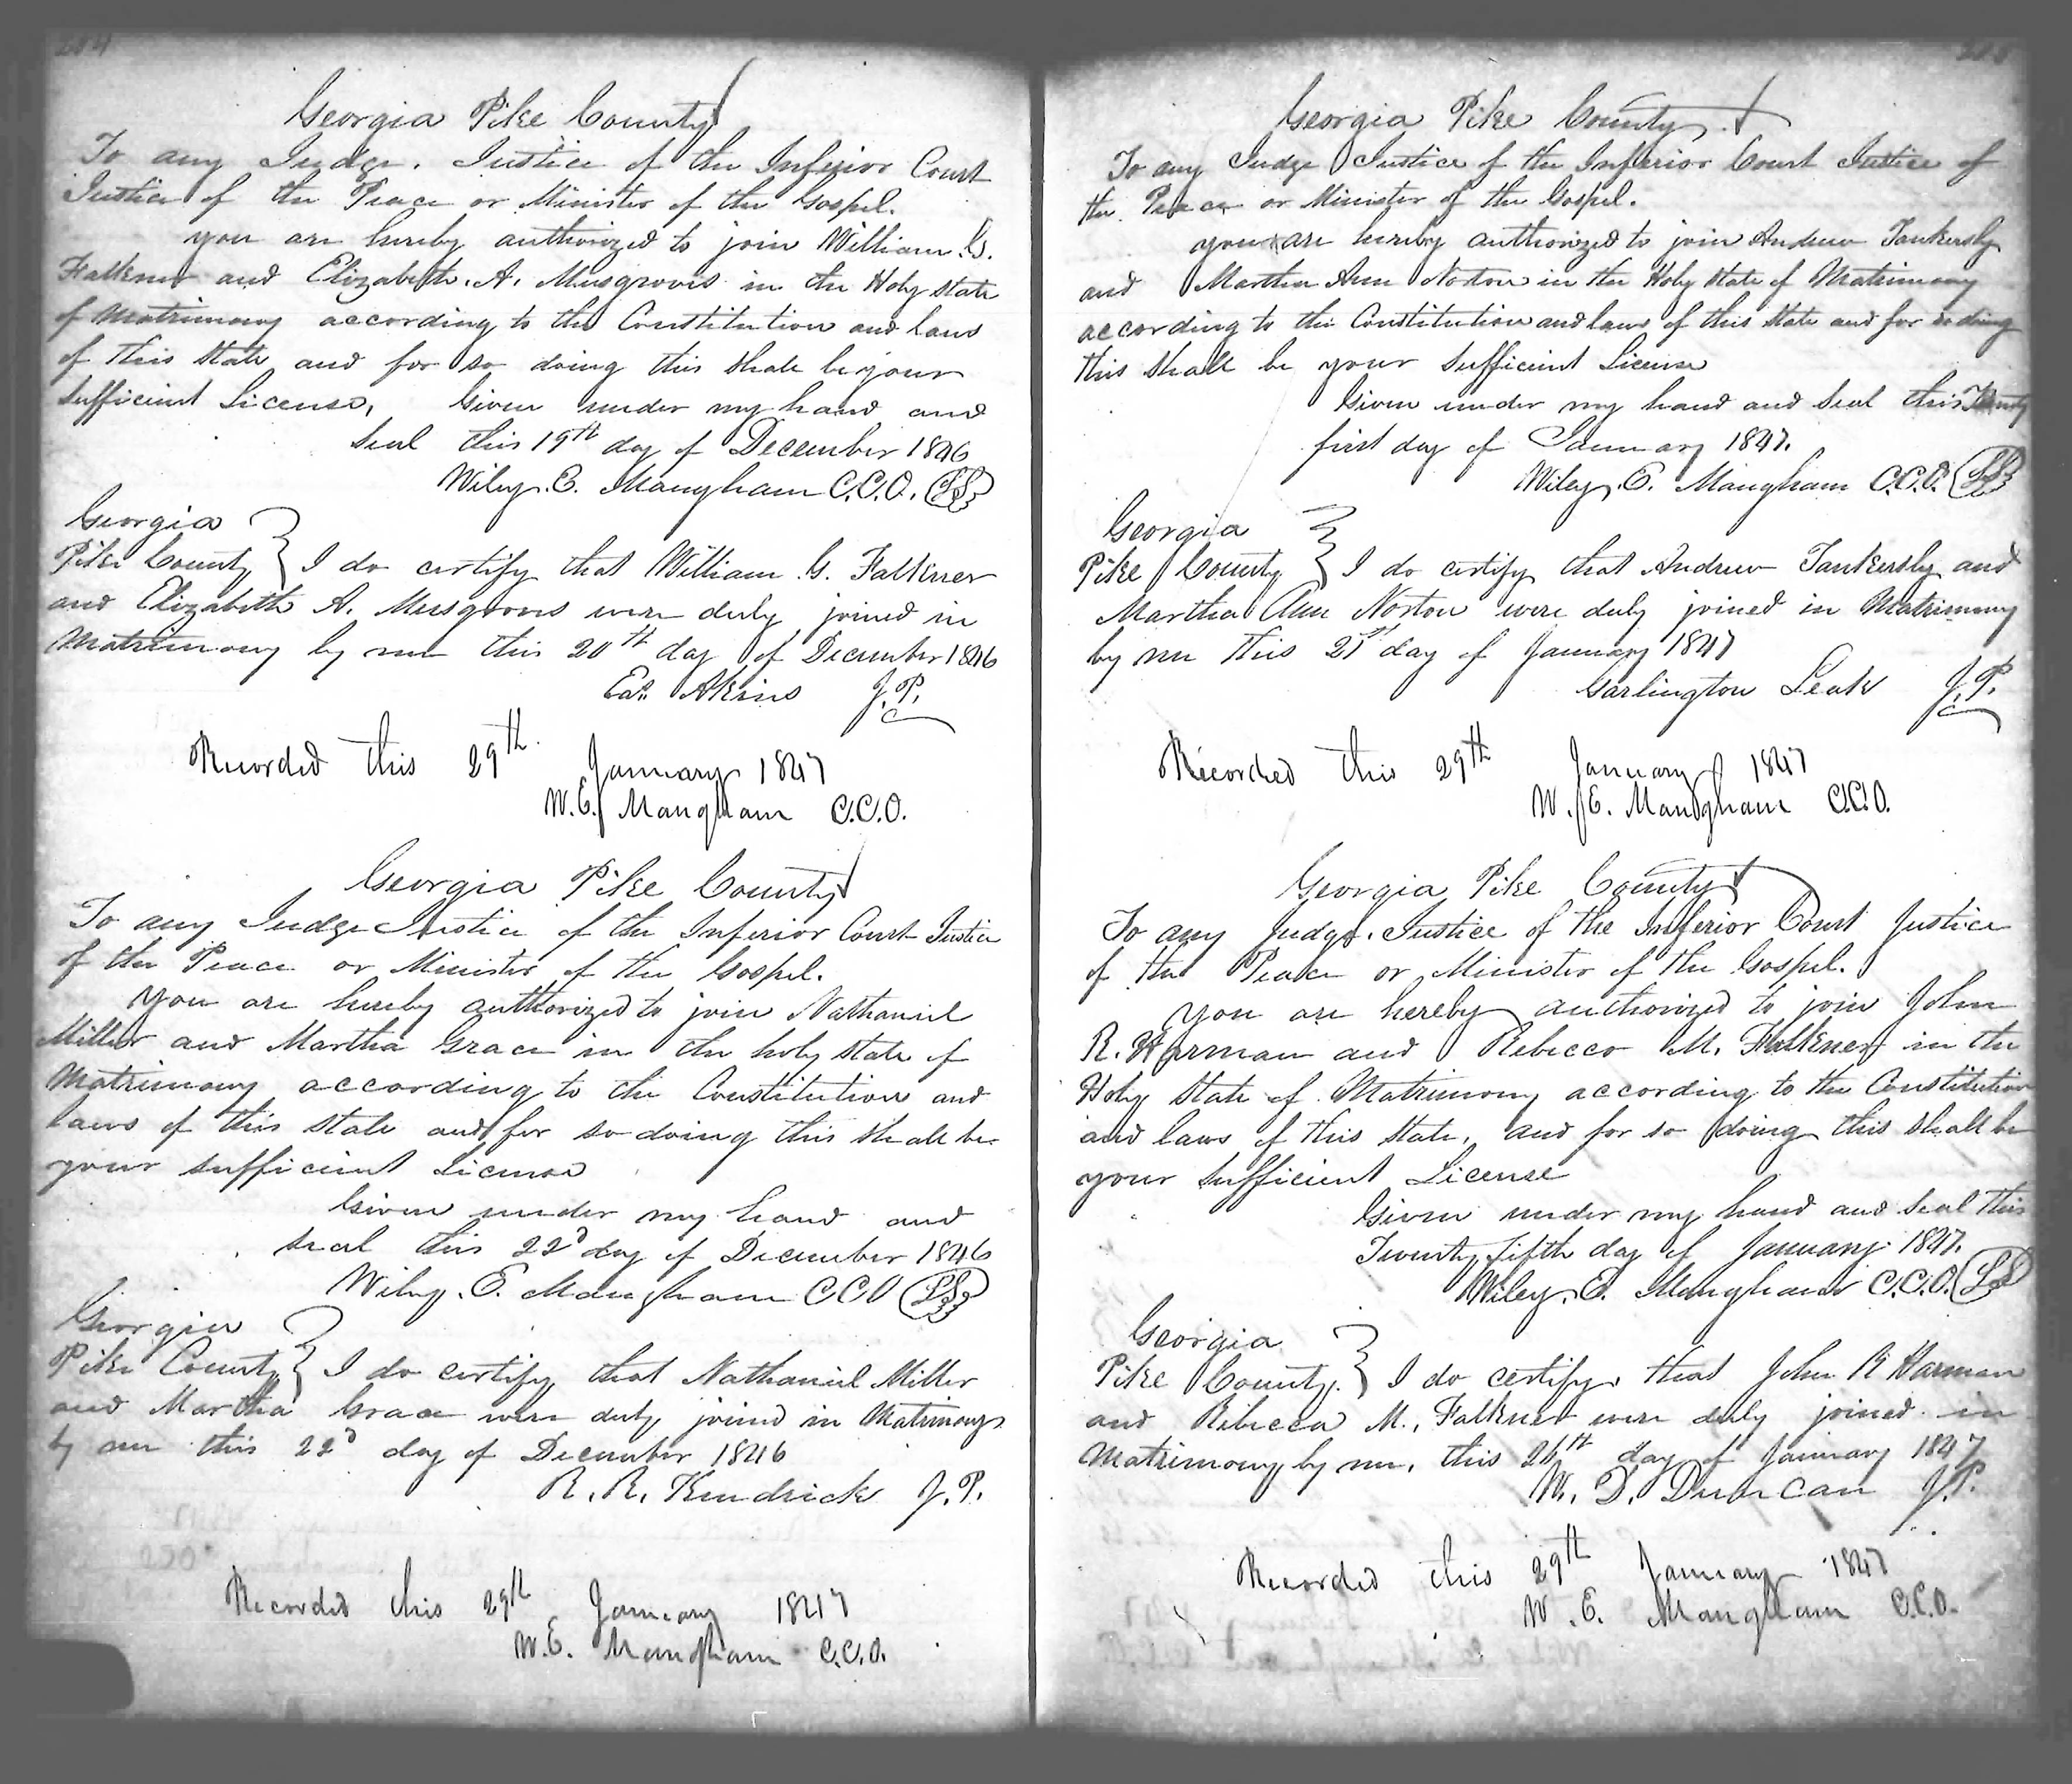 204
Georgia Pike County
To any Judge. Justice of the Inferior Court
Justice of the Peace or Minister of the Gospel.
you are hereby authorized to join William. G.
Falkner and Elizabeth. A. Musgroves in the Holy state
of Matrimony according to the Constitution and laws
of this State and for so doing this shall be your
sufficient License, Given under my hand and
seal this 19th day of December 1846
Wiley. E. Mangham C.C.O. (LS)
Georgia
Pike County } I do certify that William G. Falkner
and Elizabeth A. Musgroves were duly joined in
Matrimony by me this 20th day of December 1846
Akins J.P.
Recorded this 29th January 1847
W.E. Mangham C.C.O.
Georgia Pike County
To any Judge Justice of the Inferior Court Justice
of the Peace or Minister of the Gospel.
You are hereby authorized to join Nathaniel
Miller and Martha Grace in the holy state of
Matrimony according to the Constitution and
laws of this state and for so doing this shall be
your sufficient License
Given under my hand and
seal this 22d day of December 1846
Wiley. E. Mangham CCO (LS)
Georgia
Pike County } I do certify that Nathaniel Miller
and Martha Grace were duly joined in Matrimony
by me this 22d day of December 1846
R. R. Kendrick J.P.
Recorded this 29th January 1847
W.E. Mangham C.C.O.
205
Georgia Pike County
To any Judge Justice of the Inferior Court Justice of
the Peace or Minister of the Gospel.
you are hereby authorized to join Andrew Tankersly
and Martha Ann Norton in the Holy State of Matrimony
according to the Constitution and laws of this State and for so doing
this shall be your sufficient License
Given under my hand and Seal this Twenty
first day of January 1847.
Wiley. E. Mangham C.C.O. (LS)
Georgia
Pike County } I do certify that Andrew Tankersly and
Martha Ann Norton were duly joined in Matrimony
by me this 21st day of January 1847
Garlington Leak J.P.
Recorded this 29th January 1847
W. E. Mangham C.C.O.
Georgia Pike County
To any Judge. Justice of the Inferior Court Justice
of the Peace or Minister of the Gospel.
You are hereby authorized to join John
R. Harman and Rebecca M. Falkner in the
Holy State of Matrimony according to the Constitution
and laws of this State, and for so doing this shall be
your sufficient License
Given under my hand and seal this
Twenty fifth day of January 1847.
Wiley. E. Mangham C.C.O. (LS)
Georgia
Pike County. } I do certify that John R Harman
and Rebecca M. Falkner were duly joined in
Matrimony by me, this 26th day of January 1847
W. D. Duncan J.P.
Recorded this 29th January 1847
W. E. Mangham C.C.O.